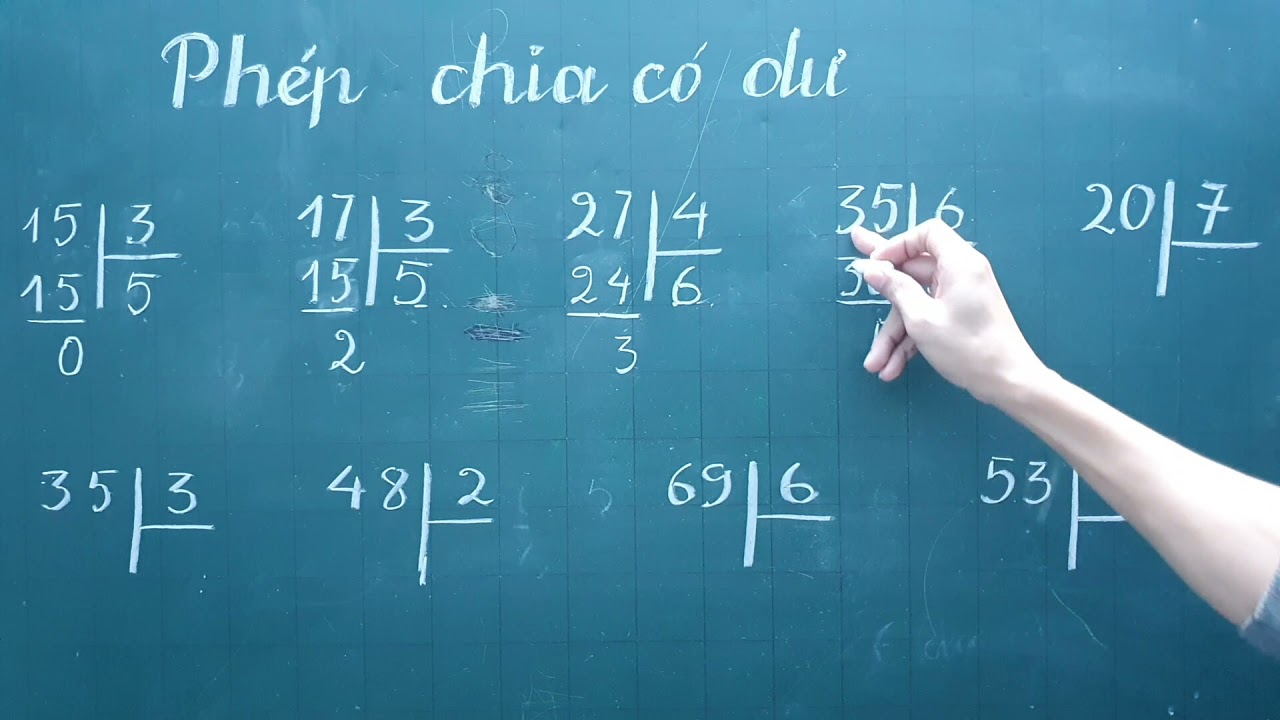 Phép chia có dư
15 3 17 3 27 4 35 6 20 7
15 5 15 5 24 6 3
0 2 3
35 3 48 2 69 6 53